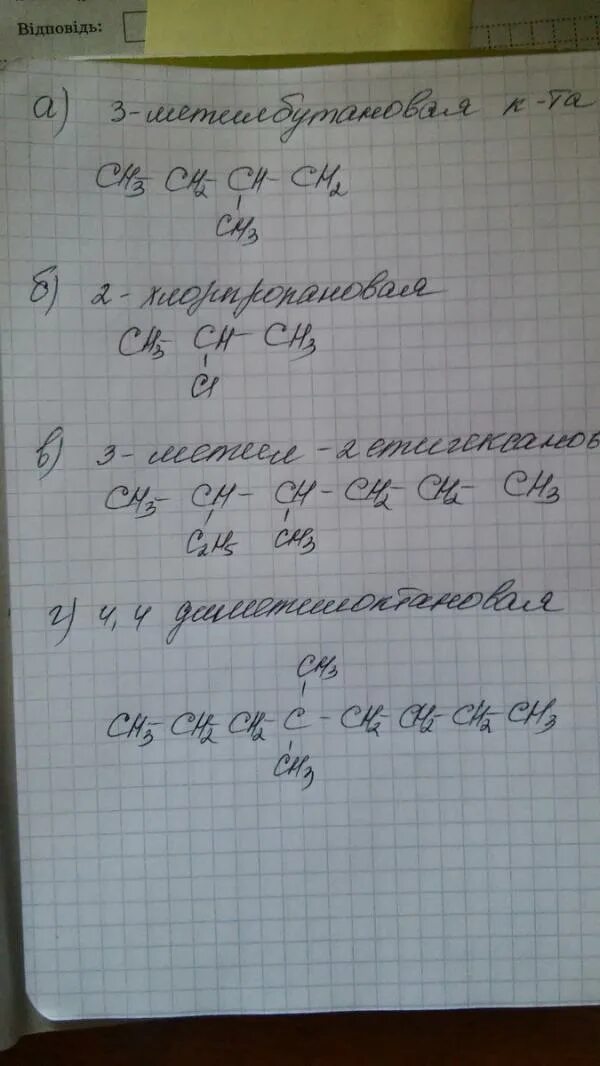 Відповідь:
а) 3-метилбутановая к-та
CH3- CH2- CH- CH2
CH3
б) 2-хлорпропановая
CH3- CH- CH3
Cl
в) 3-метил-2етилгексанов
CH3- CH- CH- CH2- CH2- CH3
C2H5 CH3
г) 4,4 диметилоктановая
CH3
CH3- CH2- CH2- C- CH2- CH2- CH2- CH3
CH3